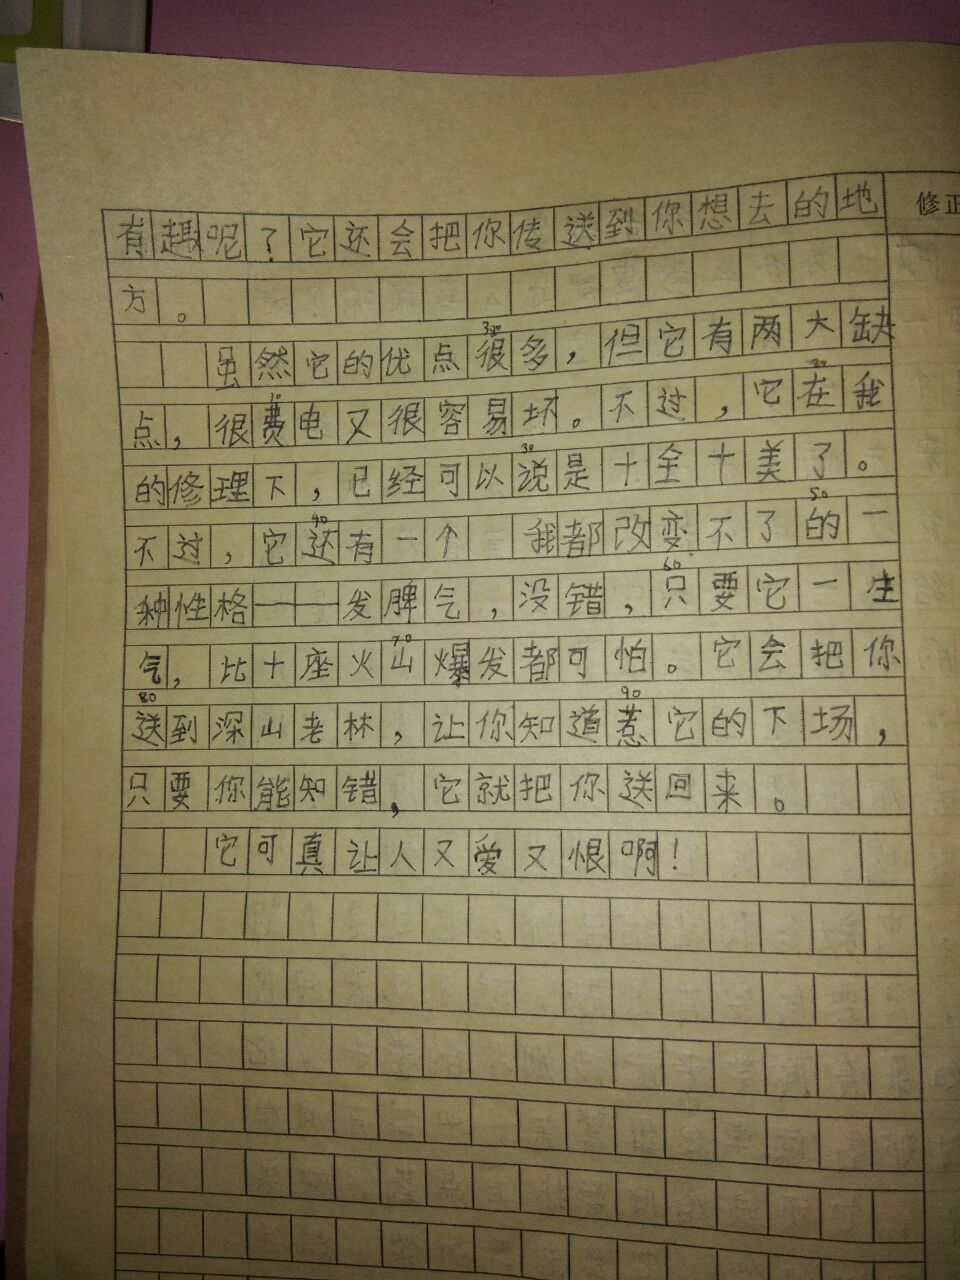 有趣呢？它还会把你传送到你想去的地
修正
方。
300
虽然它的优点很多，但它有两大缺
10 20
点，很费电又很容易坏。不过，它在我
30
的修理下，已经可以说是十全十美了。
40 50
不过，它还有一个 我都改变不了的一
60
种性格——发脾气，没错，只要它一生
70
气，比十座火山爆发都可怕。它会把你
80 90
送到深山老林，让你知道惹它的下场，
只要你能知错，它就把你送回来。
它可真让人又爱又恨啊！